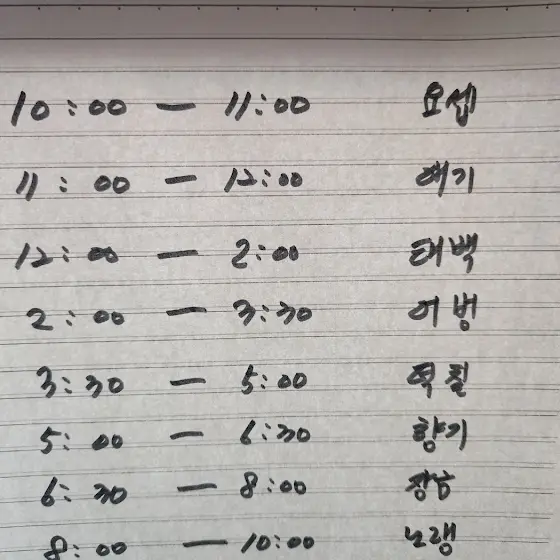 10:00 — 11:00 요셉
11:00 — 12:00 애기
12:00 — 2:00 태백
2:00 — 3:30 어벙
3:30 — 5:00 떡칠
5:00 — 6:30 향기
6:30 — 8:00 장남
8:00 — 10:00 노랭